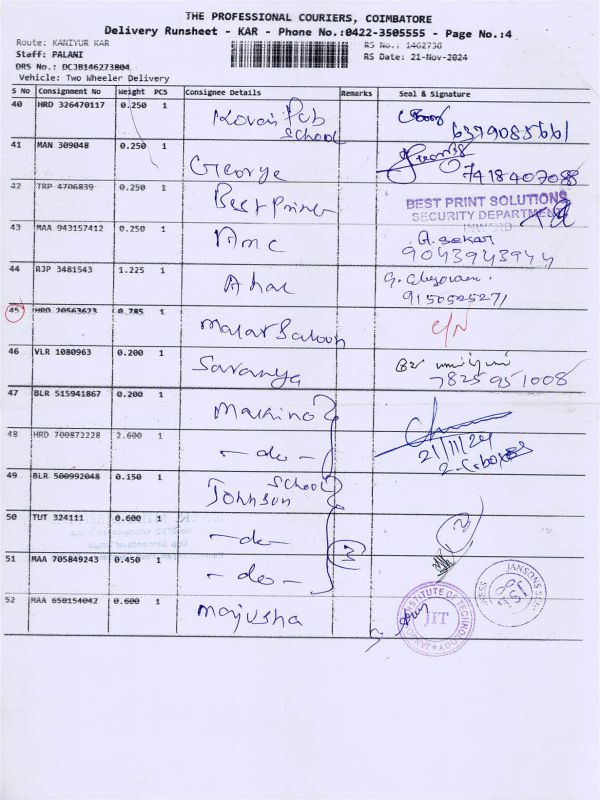 THE PROFESSIONAL COURIERS, COIMBATORE
Delivery Runsheet - KAR - Phone No.:0422-3505555 - Page No.:4
Route: KANIYUR KAR
RS No.: 1462738
Staff: PALANI
RS Date: 21-Nov-2024
DRS No.: DCJB146273804
Vehicle: Two Wheeler Delivery
S No Consignment No Weight PCS Consignee Details Remarks Seal & Signature
40 HRD 326470117 0.250 1 Kovai Pcb
School
6379085661
41 MAN 309048 0.250 1 George
7418407088
42 TRP 4706839 0.250 1 Best Printer
BEST PRINT SOLUTIONS
SECURITY DEPARTMENT
INWARD
43 MAA 943157412 0.250 1 Amc A. Sekar
9043943944
44 RJP 3481543 1.225 1
9150505271
45 HRD 20563623 0.785 1 Malar Saloon C/N
46 VLR 1080963 0.200 1 Saranya
7825951008
47 BLR 515941867 0.200 1 Makino
48 HRD 700872228 2.600 1 - do -
21/11/24
49 BLR 500992048 0.150 1 Johnson School
50 TUT 324111 0.600 1 - do -
51 MAA 705849243 0.450 1 - do -
3
52 MAA 650154042 0.600 1 Majusha
INSTITUTE OF TECHNOLOGY
JIT
JANSONS